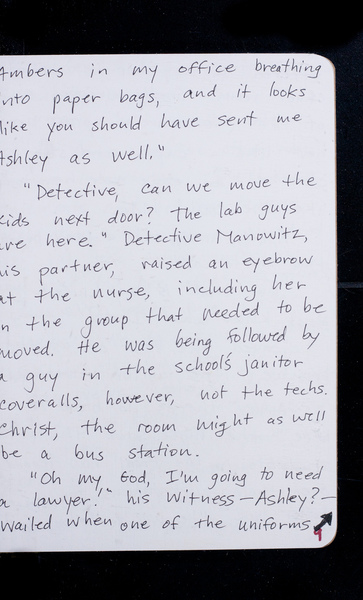 Ambers in my office breathing
into paper bags, and it looks
like you should have sent me
Ashley as well."
"Detective, can we move the
kids next door? The lab guys
are here." Detective Manowitz,
his partner, raised an eyebrow
at the nurse, including her
in the group that needed to be
moved. He was being followed by
a guy in the school's janitor
coveralls, however, not the techs.
Christ, the room might as well
be a bus station.
"Oh my God, I'm going to need
a lawyer!" his witness—Ashley?—
wailed when one of the uniforms
9